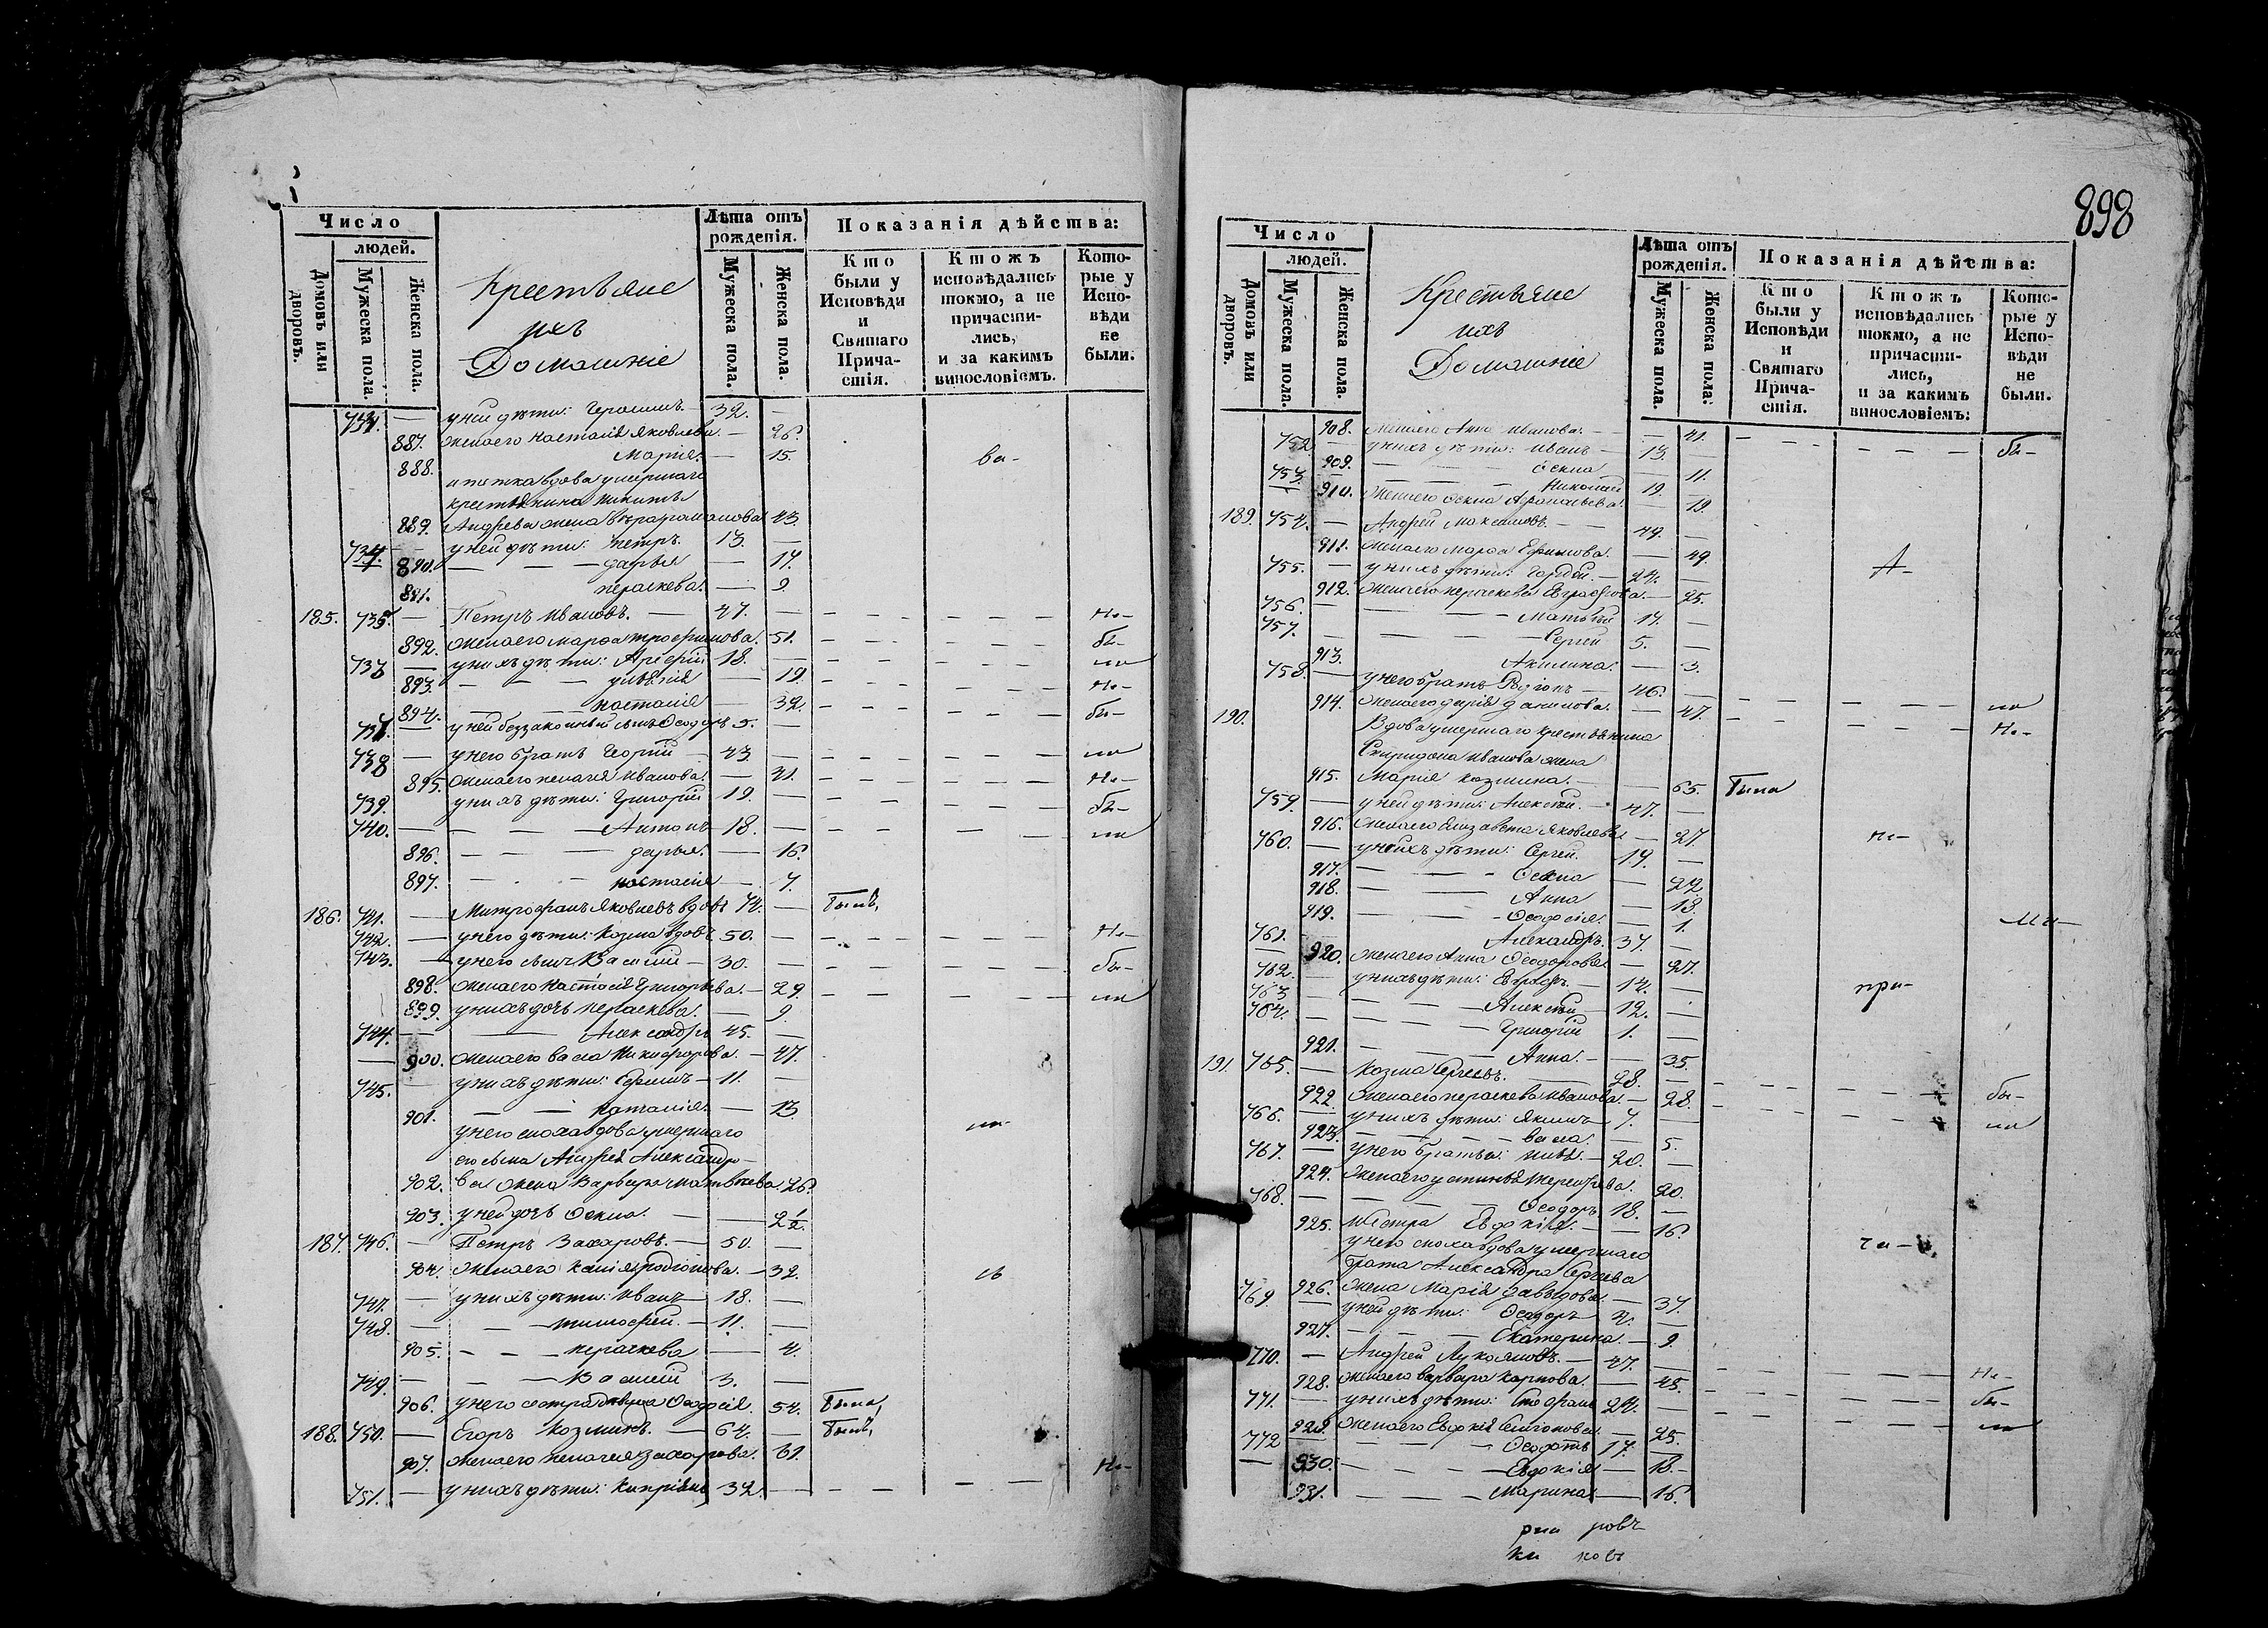 Число
людей.
Домовъ или дворовъ.
Мужеска пола.
Женска пола.
Крестьяне
ихъ
Домашніе
Лѣта отъ рожденія.
Мужеска пола.
Женска пола.
Показанія дѣйства:
Кто были у Исповѣди и Святаго Причастія.
Ктожъ исповѣдались токмо, а не причастились, и за какимъ винословіемъ.
Которые у Исповѣди не были.
у ней дѣти: Герасимъ — 32. —
887. жена его Настасія Яковлева. — 26.
888. Марія. — 15. ва-
и тетка вдова умершаго
крестьянина Никиты
889. Андреева жена 43.
734. — у ней дѣти: Петръ. 13. —
890. — — — Дарья — 17.
891. Параскева. — 9.
185. 735. — Петръ Ивановъ. — 47. — Не-
892. жена его Марѳа Трофимова. 51. бы-
— у нихъ дѣти: 18. — ли
893. — — — — 19. Не-
894. — — Настасія — 32. бы-
— у ней беззаконный сынъ Ѳеодоръ 5. —
738 — у него братъ Георгій — 43. — ли
895. жена его Пелагея Иванова. — 41. Не-
739. у нихъ дѣти: Григорій 19. — бы-
740. — — — — Антонъ — 18. — ли
896. — — — Дарья. — 16.
897. — — Настасія — 7.
186. 741. — Митрофанъ Яковлевъ вдовъ 74. — Былъ,
742. — у него дѣти: Козма вдовъ 50. — Не-
743. — у него сынъ Василій — 30. — бы-
898. жена его Настасія Григорьева. — 29. ли
899. у нихъ дочь Параскева. — 9.
744. — — Александръ 45. —
— 900. жена его Васса Никифорова. — 47.
745. — у нихъ дѣти: Ефимъ — 11. —
901. — — Наталія. — 13.
у него сноха вдова умершаго ли-
его сына Андрея Александро-
902. ва жена Варвара Матвѣева. 26.
903. у ней дочь Ѳекла. — 2½
187. 746. — Петръ Захаровъ. — 50. —
904. жена его Родіонова. — 32. сь
747. — у нихъ дѣти: Иванъ 18. —
748. — — — Тимофей. — 11. —
905. — — — Параскева — 4.
749. — — — Василій 3. —
906. у него сестра дѣвка Ѳеодосія. 54. Была,
188. 750. — Егоръ Козминъ. — 64. — Былъ,
907. жена его Пелагея Захарова. 61.
751. — у нихъ дѣти: Кипріянъ 32. — Не-
898
Число
людей.
Домовъ или дворовъ.
Мужеска пола.
Женска пола.
Крестьяне
ихъ
Домашніе
Лѣта отъ рожденія.
Мужеска пола.
Женска пола.
Показанія дѣйства:
Кто были у Исповѣди и Святаго Причастія.
Ктожъ исповѣдались токмо, а не причастились, и за какимъ винословіемъ:
Которые у Исповѣди не были.
908. жена его Анна Иванова. — — 41. бы-
752. — у нихъ дѣти: Иванъ — 13. —
909. — — Ѳекла — 11.
753. — — — Николай 19. —
910. жена его Ѳекла — 19.
189. 754. — Андрей Максимовъ. — 49. —
911. жена его Марѳа Ефимова. — 49.
755. — у нихъ дѣти: Гордей. — 24. — А-
912. жена его Параскева Евграфова. — 25.
756. — — — Матвѣй 14. —
757. — — — Сергій 5. —
913. Акилина. — 3.
758. — у него братъ Родіонъ — 46. —
914. жена его Дарія Данилова. — 47. ли
190. Вдова умершаго крестьянина Не-
Спиридона Иванова жена
915. Марія Козмина. — 65. Была
759. — у ней дѣти: Алексѣй. — 47. —
916. жена его Елизавета Яковлева — 27. не-
760. — у нихъ дѣти: Сергій. 19. —
917. — — — Ѳекла — 22.
918. — — — Анна — 13.
919. — — — Ѳеодосія. — 1. ли
761. — Александръ. 37. —
920. жена его Анна Ѳеодорова — 27.
762. — у нихъ дѣти: Евграфъ. — 14. — при-
763 — — — Алексѣй — 12. —
764. — — — Григорій 1. —
921. — — — Анна. — 35.
191. 765. — Козма Сергеевъ. — 28. —
922. жена его Параскева Иванова. — 28. бы-
766. — у нихъ дѣти: Якимъ 7. — ли
923. — — — Васса. — 5.
767. — у него братья: 20. —
924. жена его Устинья — 20.
768. — — — Ѳеодоръ 18. —
925. Сестра Евдокія. — 16.
у него сноха вдова умершаго ча-
брата Александра Сергеева
926. жена Марія Давыдова. — 37.
769. — у ней дѣти: Ѳеодоръ 4. —
927. — — — Екатерина. — 9.
770. — Андрей Лукояновъ. — 47. —
928. жена его Варвара Карпова. — 45. Не-
771. — у нихъ дѣти: Стефанъ 24. — бы-
929. жена его Евдокія — 25. ли
772 — — — Ѳеодотъ 17. —
— 930. — — — Евдокія — 18.
931. — — — Марина — 16.
ровъ
ковъ